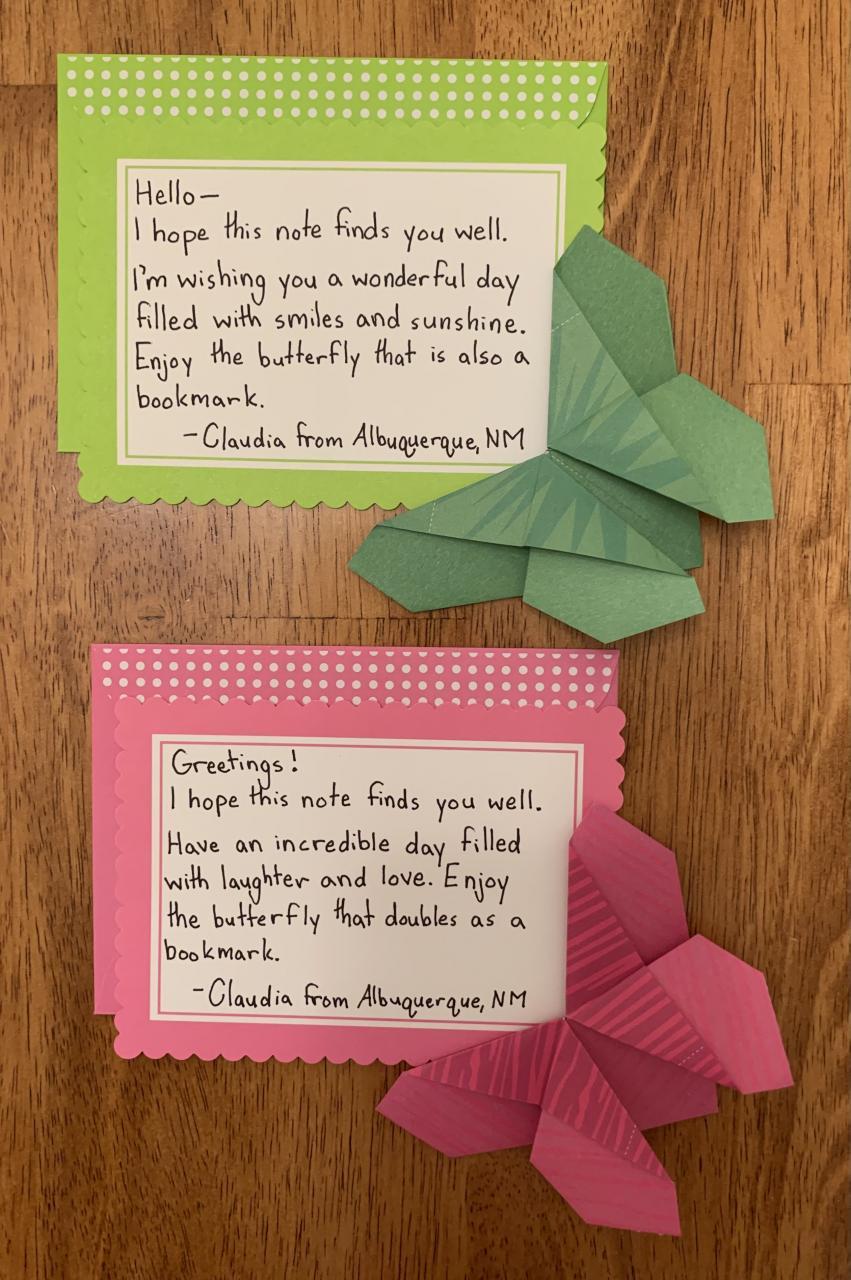 Hello—
I hope this note finds you well.
I'm wishing you a wonderful day
filled with smiles and sunshine.
Enjoy the butterfly that is also a
bookmark.
-Claudia from Albuquerque, NM
Greetings!
I hope this note finds you well.
Have an incredible day filled
with laughter and love. Enjoy
the butterfly that doubles as a
bookmark.
-Claudia from Albuquerque, NM